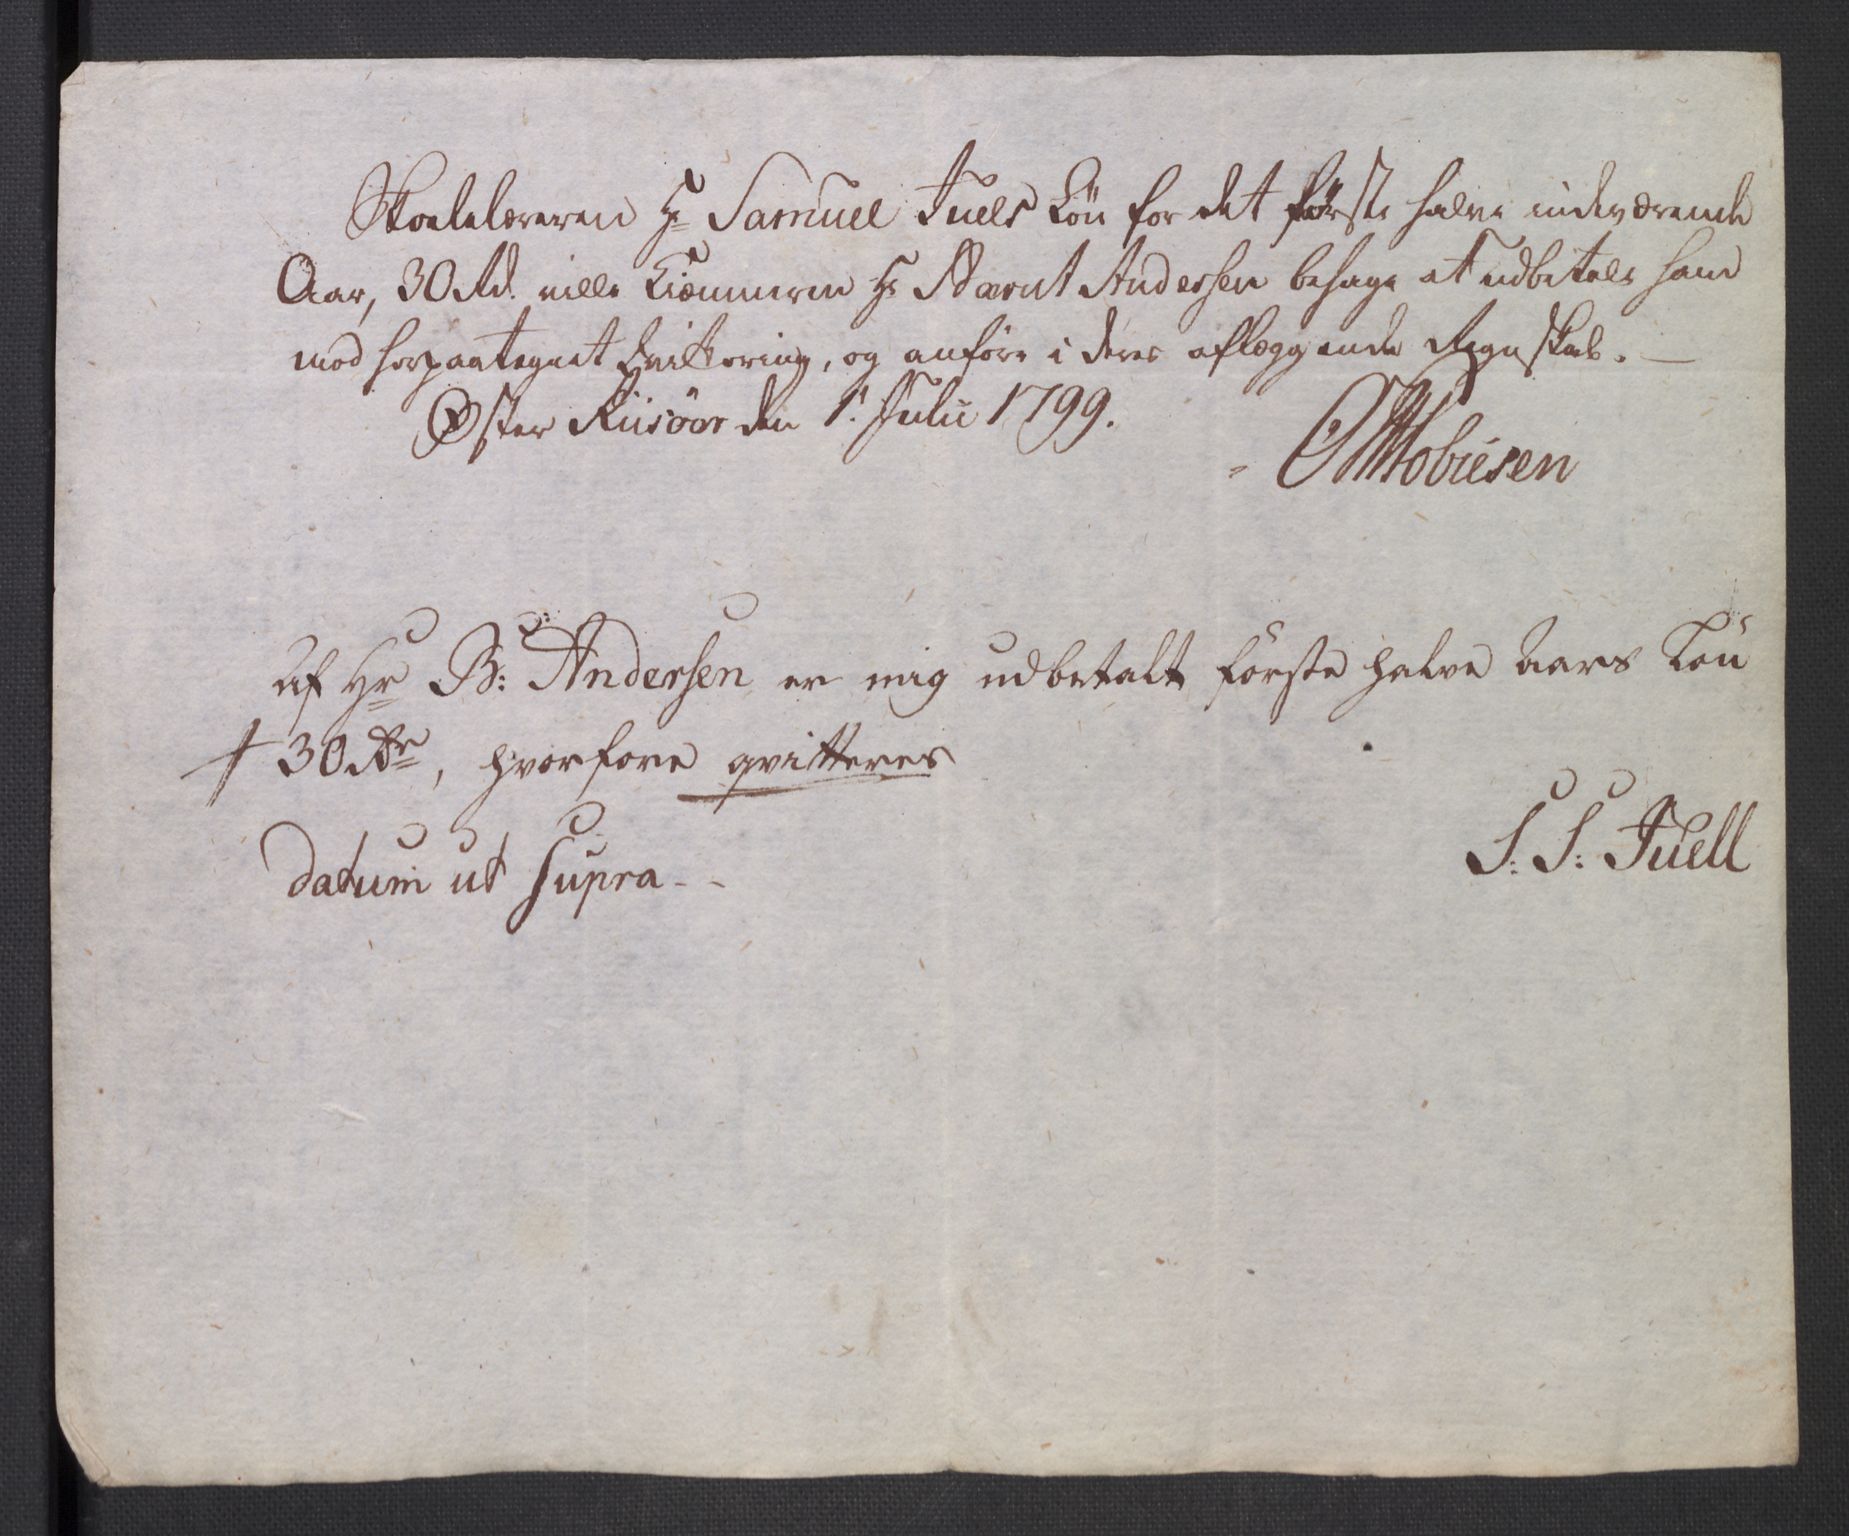 Skolelæreren Hr Samuel Juels Løn for det første halve indeværende
Aar, 30 Rd. ville Kiæmneren Hr Bærnt Andersen behage at udbetale ham
mod herpaategnet Qvittering, og anføre i deres aflæggende Regnskab. —
Øster Riisöer den 1. Julii 1799.
Mobiesen
Af Hr B: Andersen er mig udbetalt förste halve Aars Lön
30 Rdr, hvorfore qvitteres
datum ut supra - -
S: S: Juell